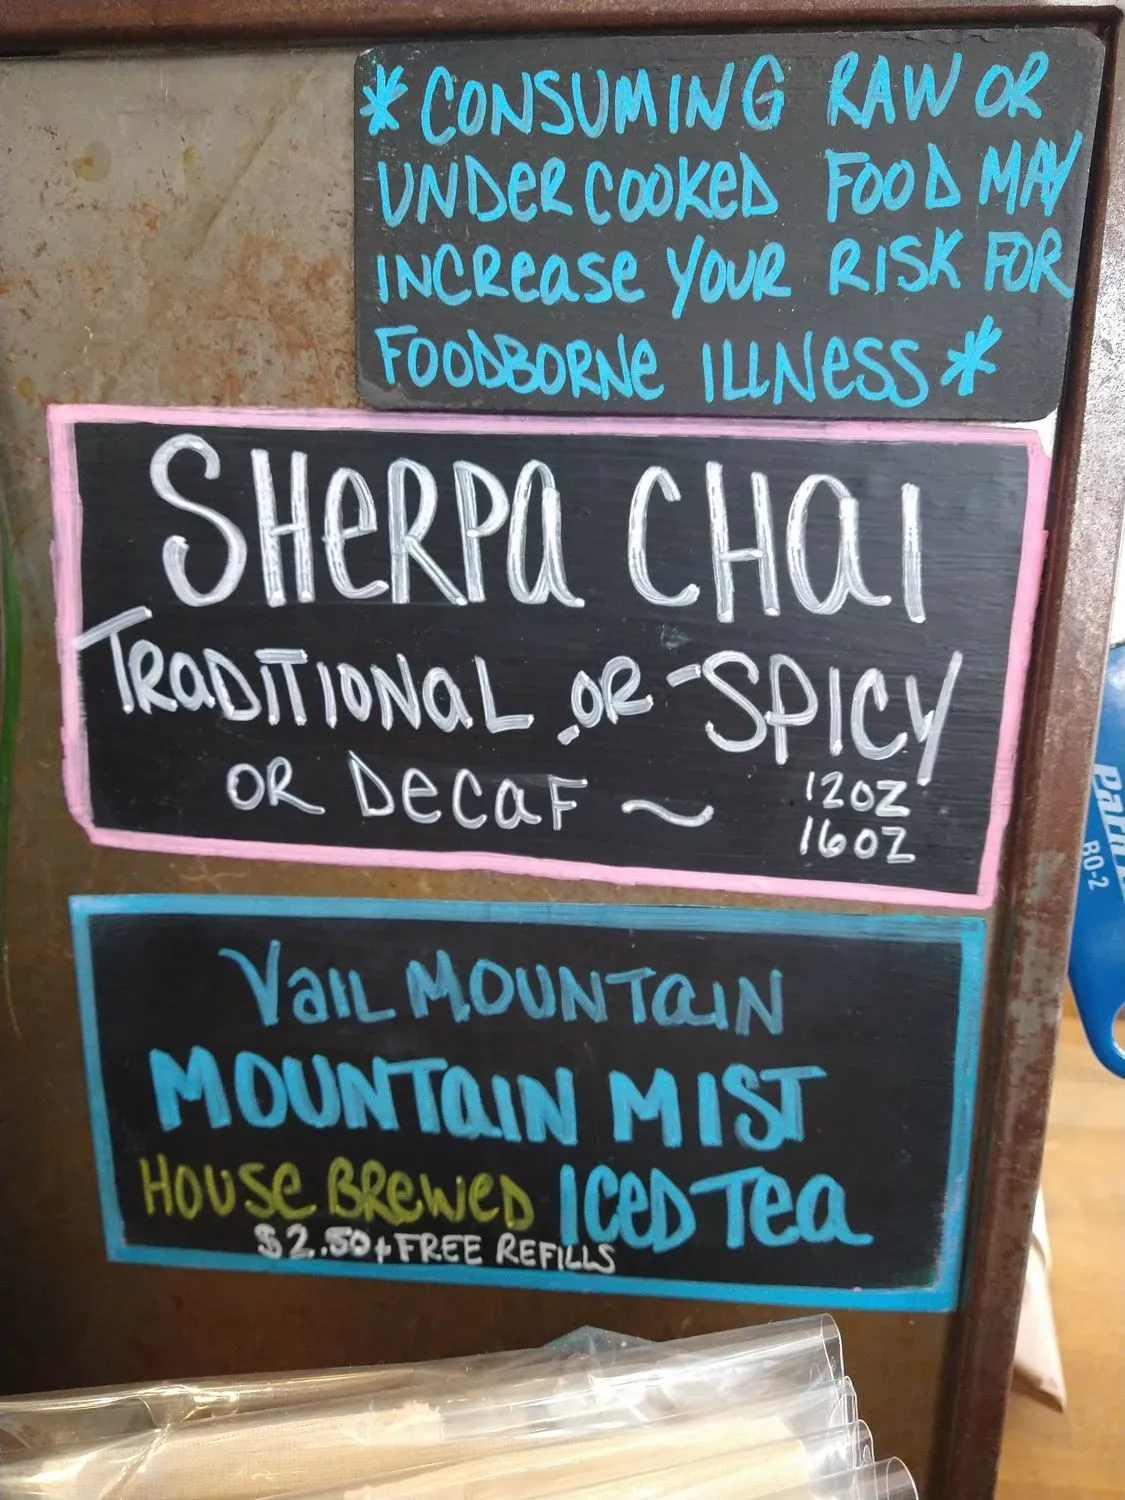 *CONSUMING RAW OR
UNDERCOOKED FOOD MAY
INCREASE YOUR RISK FOR
FOODBORNE ILLNESS*
SHERPA CHAI
TRADITIONAL OR SPICY
OR DECAF ~
12OZ
16OZ
VAIL MOUNTAIN
MOUNTAIN MIST
HOUSE BREWED ICED TEA
$2.50 + FREE REFILLS
RO-2